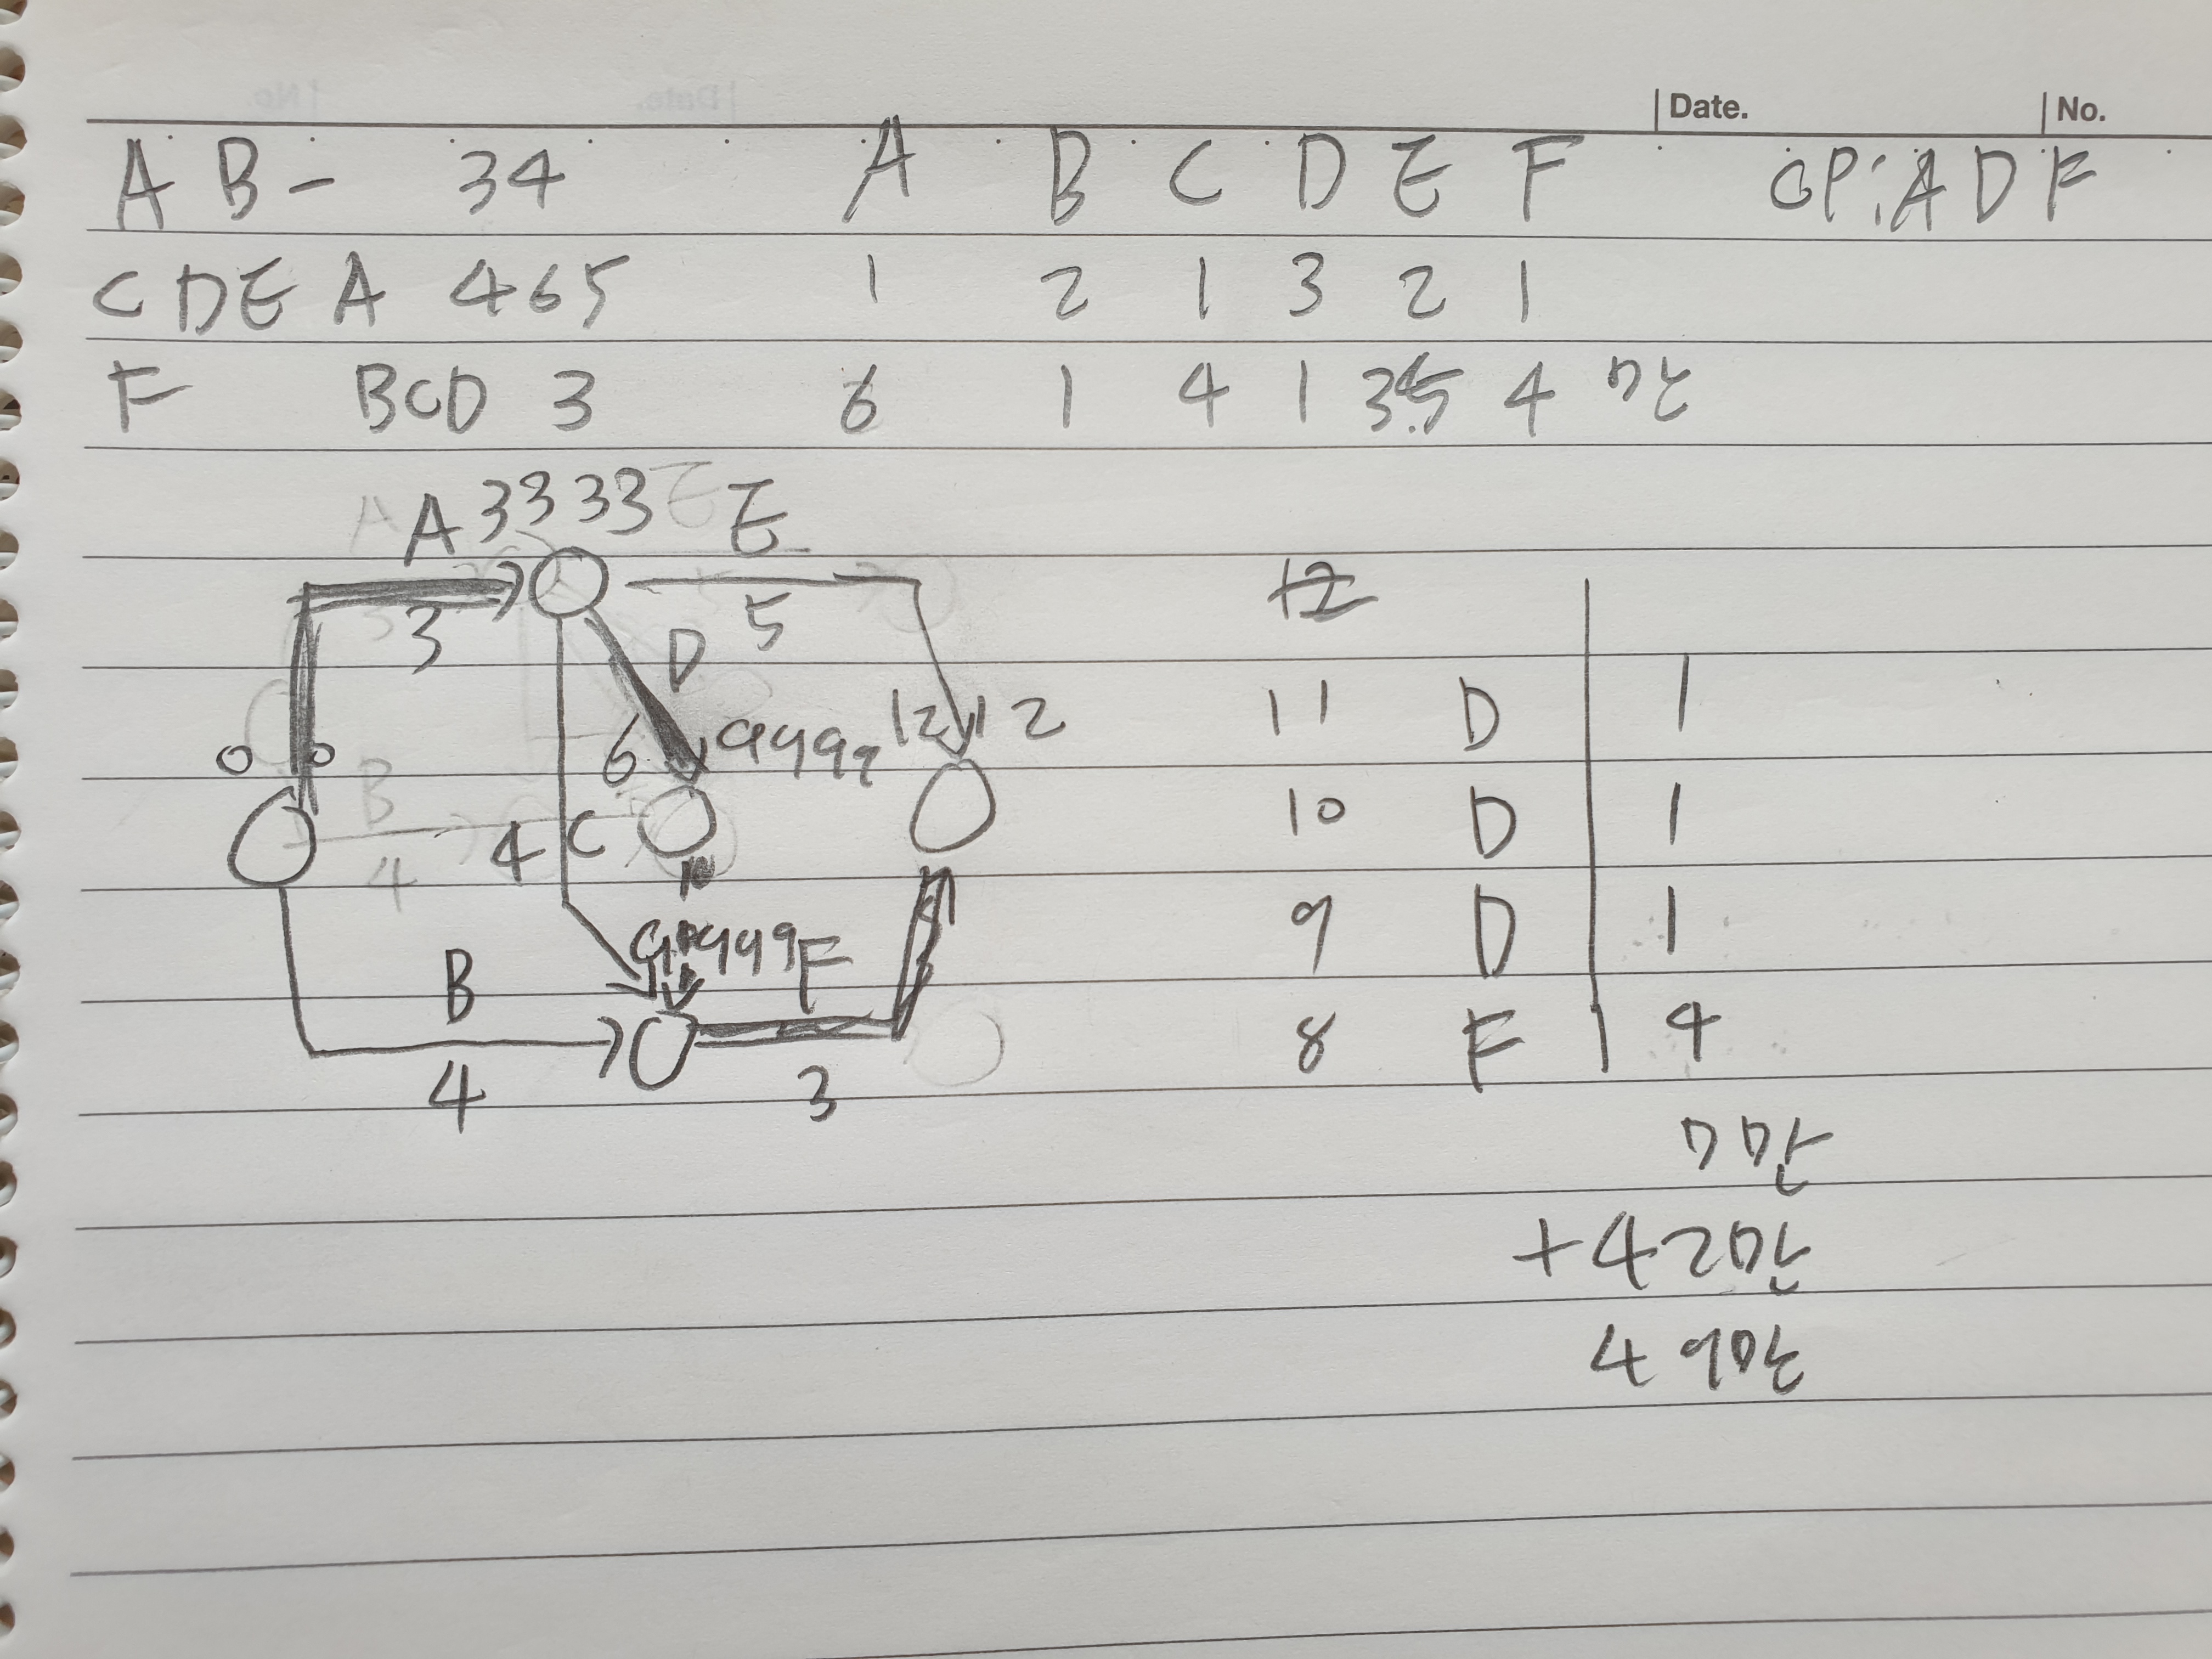 Date. No.
A B - 34 A B C D E F CP: A D F
C D E A 465 1 2 1 3 2 1
F BCD 3 6 1 4 1 4 만
A 3 3 3 3 E
3 5 12
D
0 0 6 9 9 9 9 12 12 11 D 1
B 4 C 10 D 1
4
9 9 9 9 F 9 D 1
B 8 F 4
4 3
7만
+42만
49만